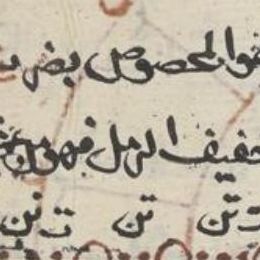 هو المخصوص بضرب
خفيف الرمل فهو
تن تن تنن